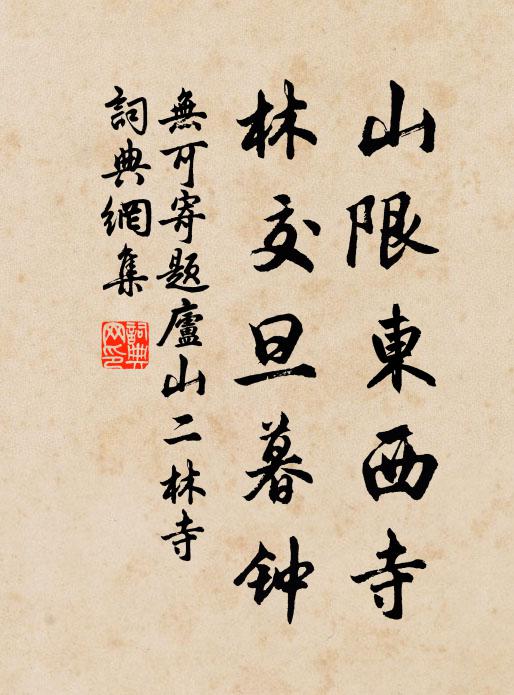 山限東西寺
林交旦暮钟
無可寄題廬山二林寺
詞典網集
詞典網印